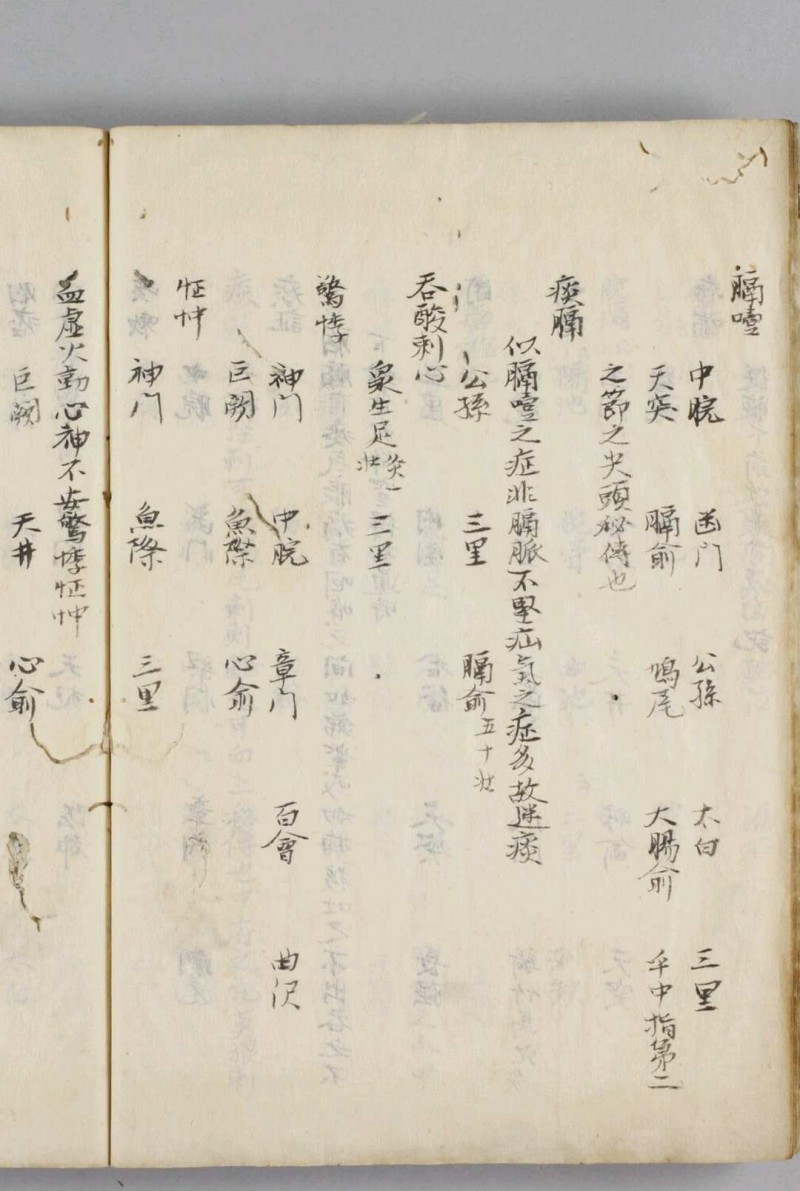 膈噎
中脘 函门 公孫 太白 三里
天突 膈俞 鳩尾 大腸俞 手中指第二
之節之尖頭秘傳也
痰膈
似膈噎之症非膈脈不堅疝氣之症多故逆痰
公孫 三里 膈俞五十壮
呑酸刺心
衆生足灸一壮 三里
驚悸
神门 中脘 章门 百會 曲沢
巨闕 魚際 心俞
怔忡
神门 魚際 三里
血虚火動心神不安驚悸怔忡
巨闕 天井 心俞